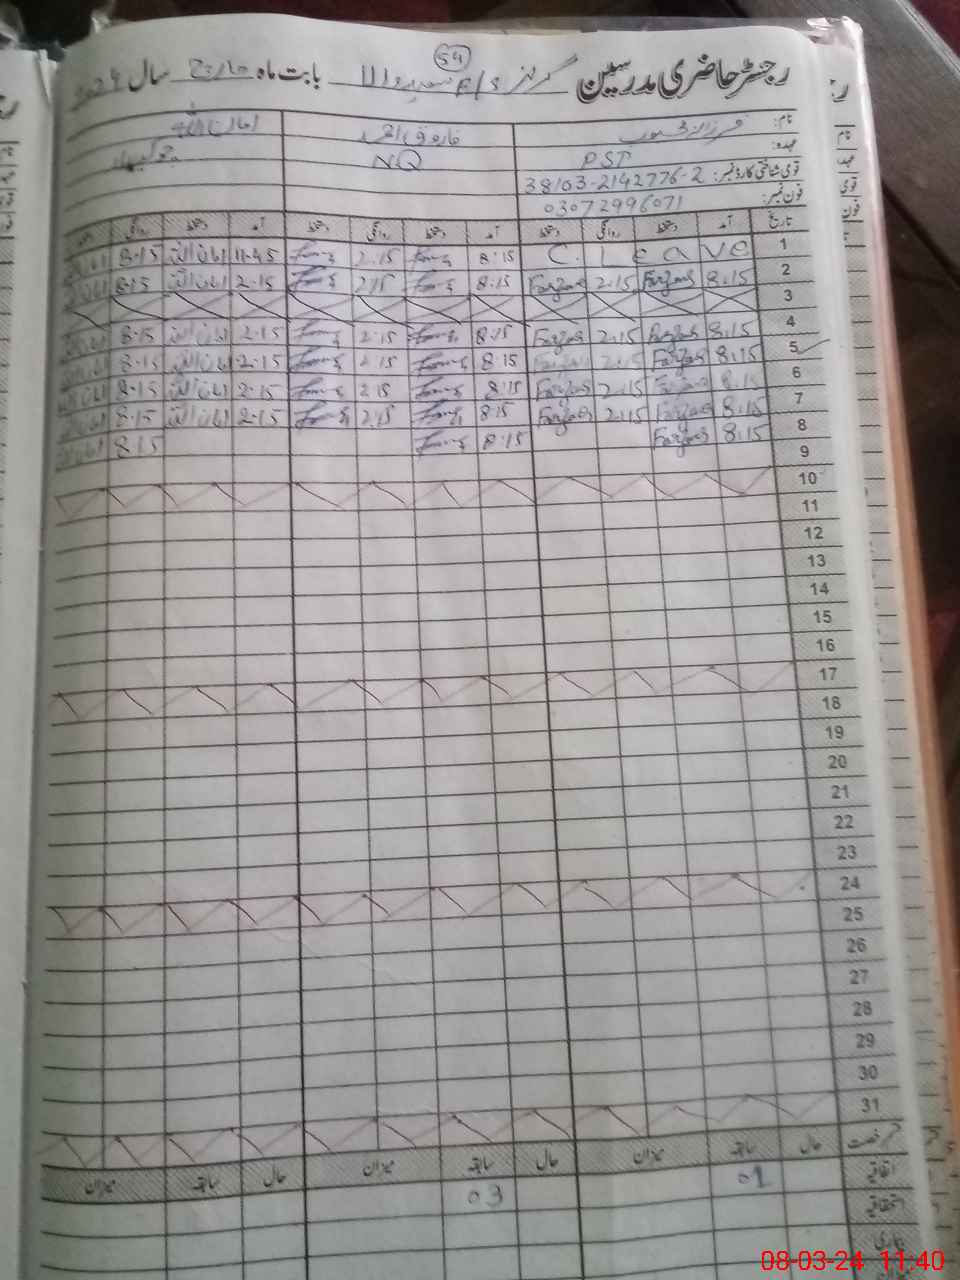 54
رجسٹر حاضری مدرسین گرلز E/S بابت ماہ مارچ سال 2024
نام: فاروق احمد امان اللہ
عہدہ: PST NQ چوکیدار
قومی شناختی کارڈ نمبر: 38103-2142776-2
فون نمبر: 03072996071
تاریخ آمد دستخط روانگی دستخط آمد دستخط روانگی دستخط آمد دستخط روانگی
1 C. leave 8:15 2.15 11-45 امان اللہ 8-15
2 8.15 Farzana 2.15 Farzana 8:15 2.15 2.15 امان اللہ 8.15
3
4 8.15 Farzana 2.15 Farzana 8:15 2.15 2.15 امان اللہ 8-15
5 8.15 Farzana 2.15 Farzana 8:15 2.15 2-15 امان اللہ 8-15
6 8.15 Farzana 2.15 Farzana 8:15 2.15 2-15 امان اللہ 8-15
7 8.15 Farzana 2.15 Farzana 8:15 2.15 2-15 امان اللہ 8-15
8 8.15 Farzana 8:15 8.15
9
10
11
12
13
14
15
16
17
18
19
20
21
22
23
24
25
26
27
28
29
30
31
قسم رخصت حال سابقہ میزان حال سابقہ میزان حال سابقہ میزان
اتفاقیہ 01 03
استحقاقیہ
بیماری
08-03-24 11:40